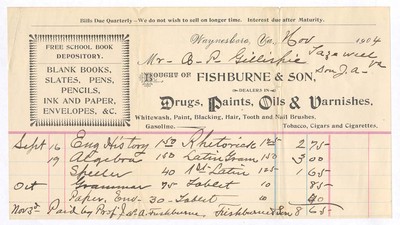 Bills Due Quarterly—We do not wish to sell on longer time. Interest due after Maturity.
FREE SCHOOL BOOK
DEPOSITORY.
BLANK BOOKS,
SLATES, PENS,
PENCILS,
INK AND PAPER,
ENVELOPES, &C.
Waynesboro, Va., Nov 1904
Mr A. P. Gillespie Tazewell Va
BOUGHT OF FISHBURNE & SON,
DEALERS IN
Drugs, Paints, Oils & Varnishes,
Whitewash, Paint, Blacking, Hair, Tooth and Nail Brushes.
Gasoline. Tobacco, Cigars and Cigarettes.
Sept 16 Eng History 150 Rhetorick 125 2 75
19 Algebra 150 Latin Gram 150 3 00
Speller 40 1st Latin 125 1 65
Oct Grammar 75 Tablet 10 85
Paper, Env 30 Tablet 10 40
Nov 3d Paid by Prof Jas. A. Fishburne Fishburne & Son 8 65